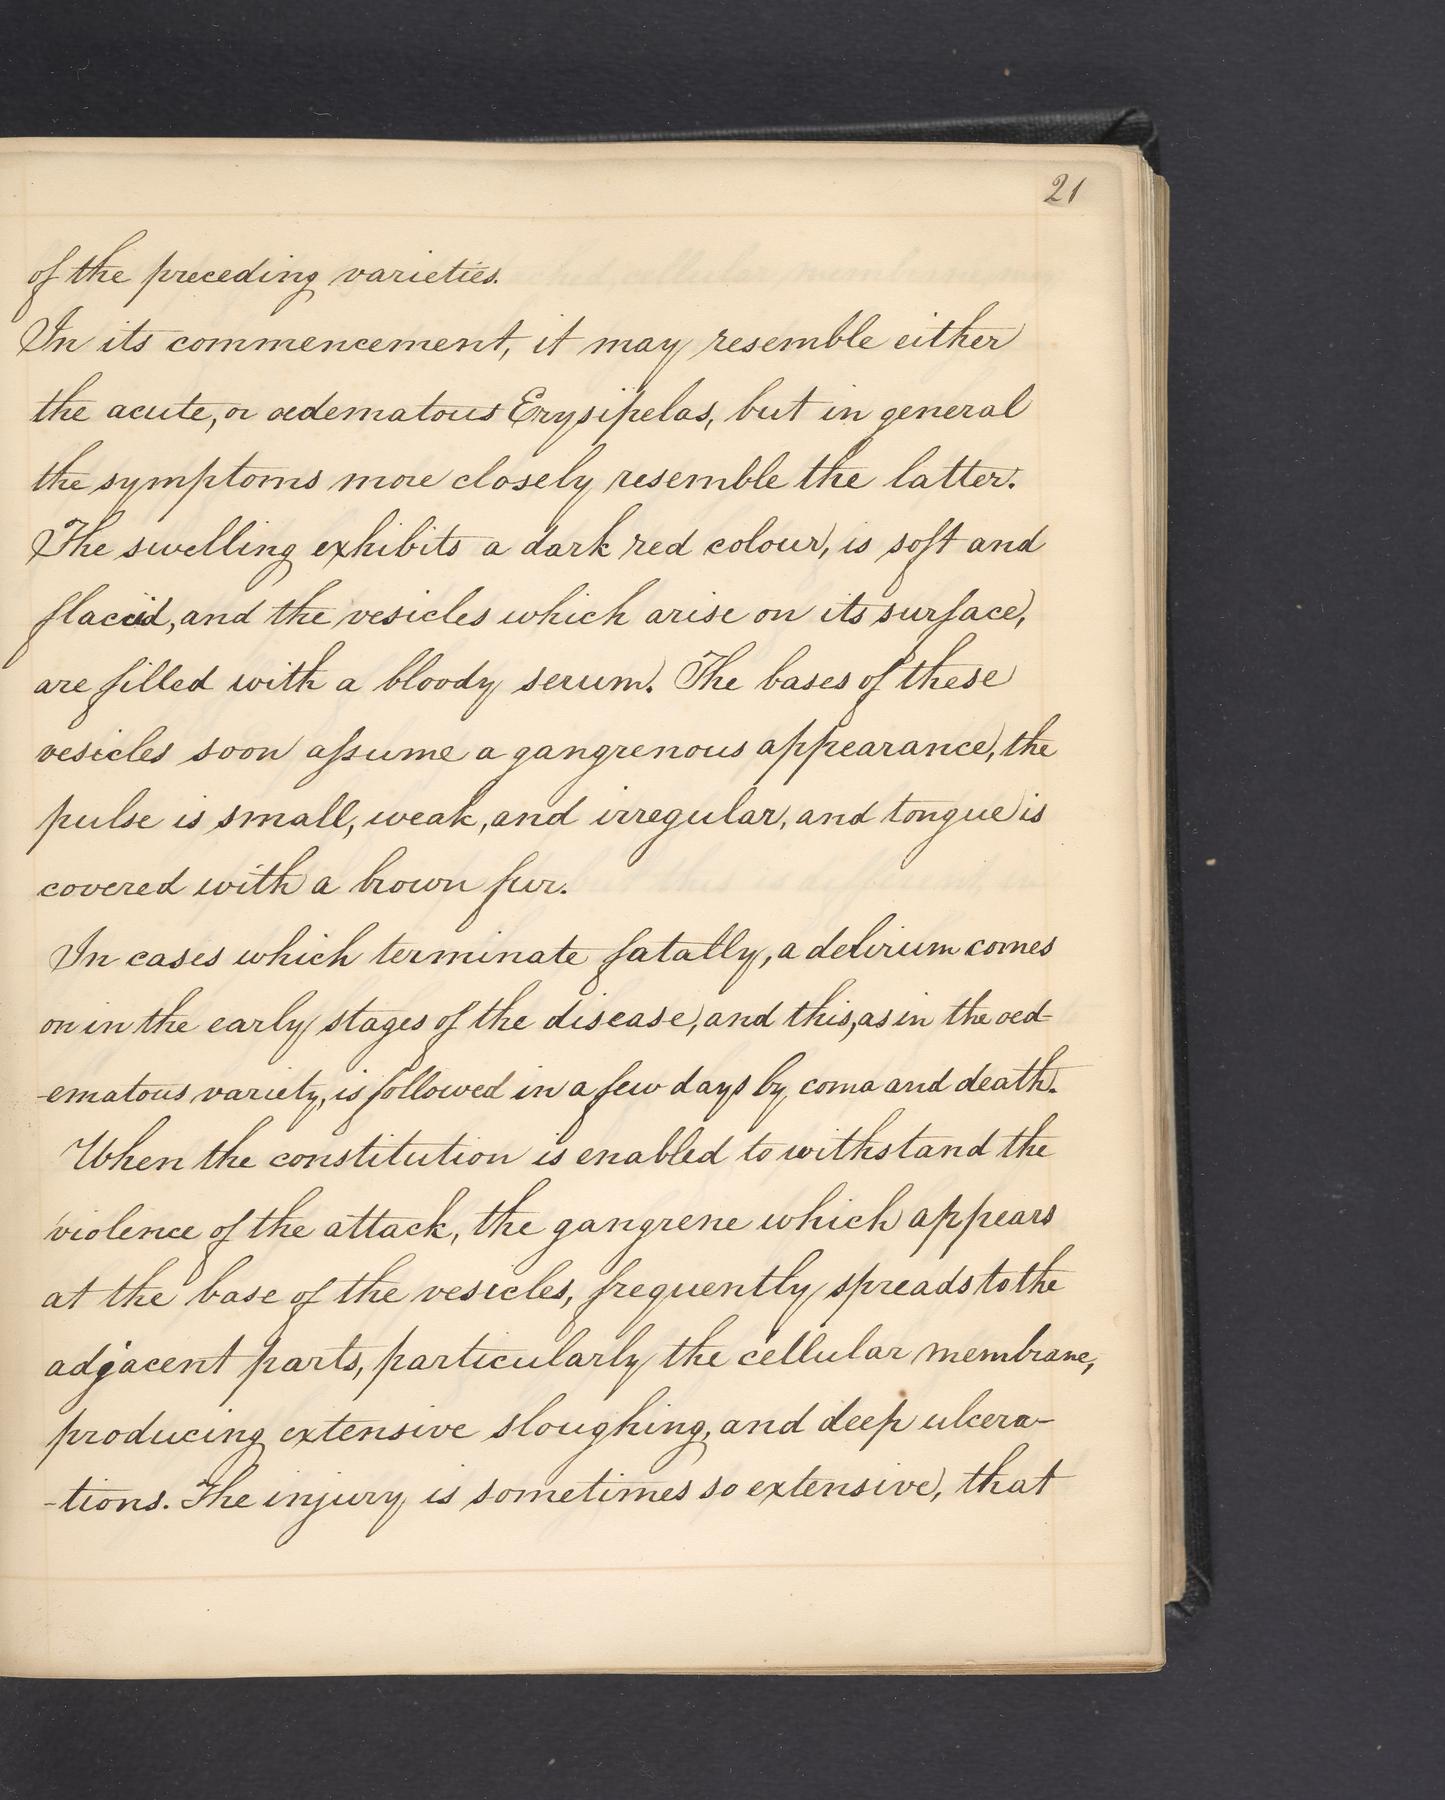 21
of the preceding varieties.
In its commencement, it may resemble either
the acute, or oedematous Erysipelas, but in general
the symptoms more closely resemble the latter.
The swelling exhibits a dark red colour, is soft and
flaccid, and the vesicles which arise on its surface,
are filled with a bloody serum. The bases of these
vesicles soon assume a gangrenous appearance, the
pulse is small, weak, and irregular, and tongue is
covered with a brown fur.
In cases which terminate fatally, a delirium comes
on in the early stages of the disease, and this, as in the oed-
-ematous variety, is followed in a few days by coma and death.
When the constitution is enabled to withstand the
violence of the attack, the gangrene which appears
at the base of the vesicles, frequently spreads to the
adjacent parts, particularly the cellular membrane,
producing extensive sloughing, and deep ulcera-
-tions. The injury is sometimes so extensive, that